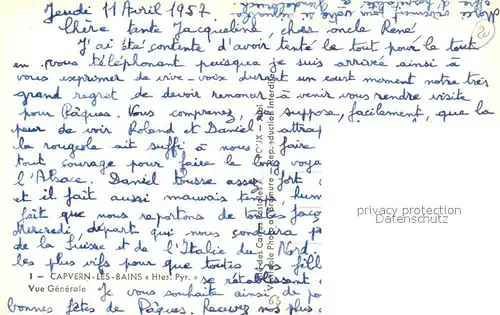 Jeudi 11 Avril 1957.
Chère tante Jacqueline, cher oncle René
J'ai été contente d'avoir tenté le tout pour le tout
en vous téléphonant puisque je suis arrivée ainsi à
vous exprimer de vive-voix durant un court moment notre très
grand regret de devoir renoncer à venir vous rendre visite
pour Pâques. Vous comprenez, je suppose, facilement, que la
peur de voir Roland et Daniel attrap
la rougeole ait suffi à nous faire
tout courage pour faire le long voya
l'Alsace. Daniel tousse assez fort
et il fait aussi mauvais temps, hum
fait que nous reportons de toutes faço
Mercredi, départ qui nous conduira
de la Suisse et de l'Italie du Nord
les plus vifs pour que toutes vos fill
1 — CAPVERN-LES-BAINS « Htes. Pyr. »
se rétablissent
Vue Générale
Je vous souhaite ainsi de
bonnes fêtes de Pâques. Recevez nos plus
Véritable Photo au Bromure - Reproduction Interdite
privacy protection
20